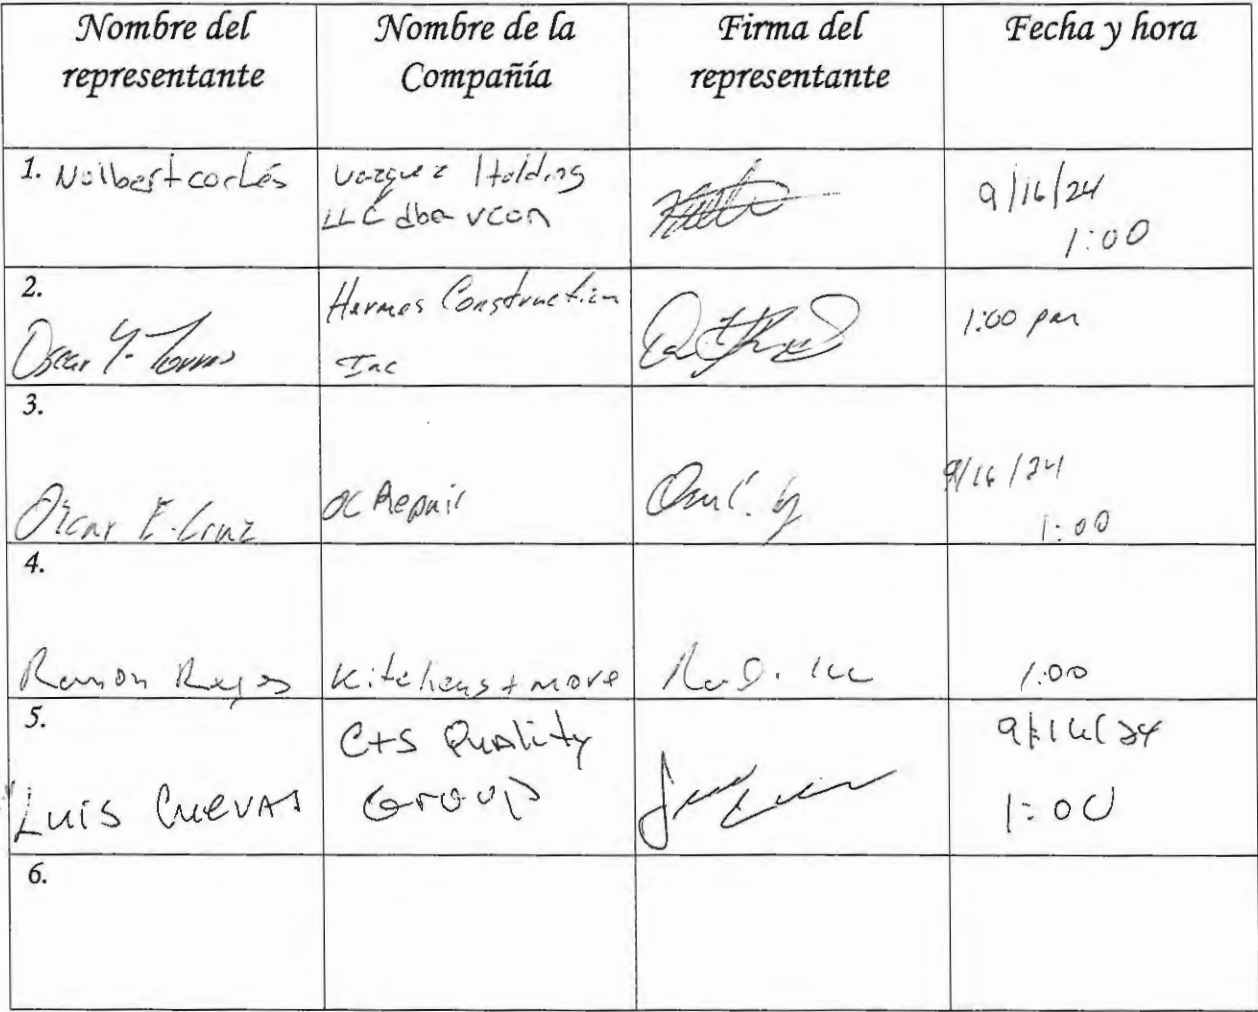 Nombre del
representante
Nombre de la
Compañía
Firma del
representante
Fecha y hora
1. Nolbert cortés
Vazquez Holdings
LLC dba vcon
9/16/24
1:00
2.
Oscar Y. Torres
Hermes Construction
Inc
1:00 pm
3.
Oscar E. Cruz
OC Repair
9/16/24
1:00
4.
Ramon Reyes
Kitchens + more
1:00
5.
Luis Cuevas
C+S Quality
Group
9/16/24
1:00
6.